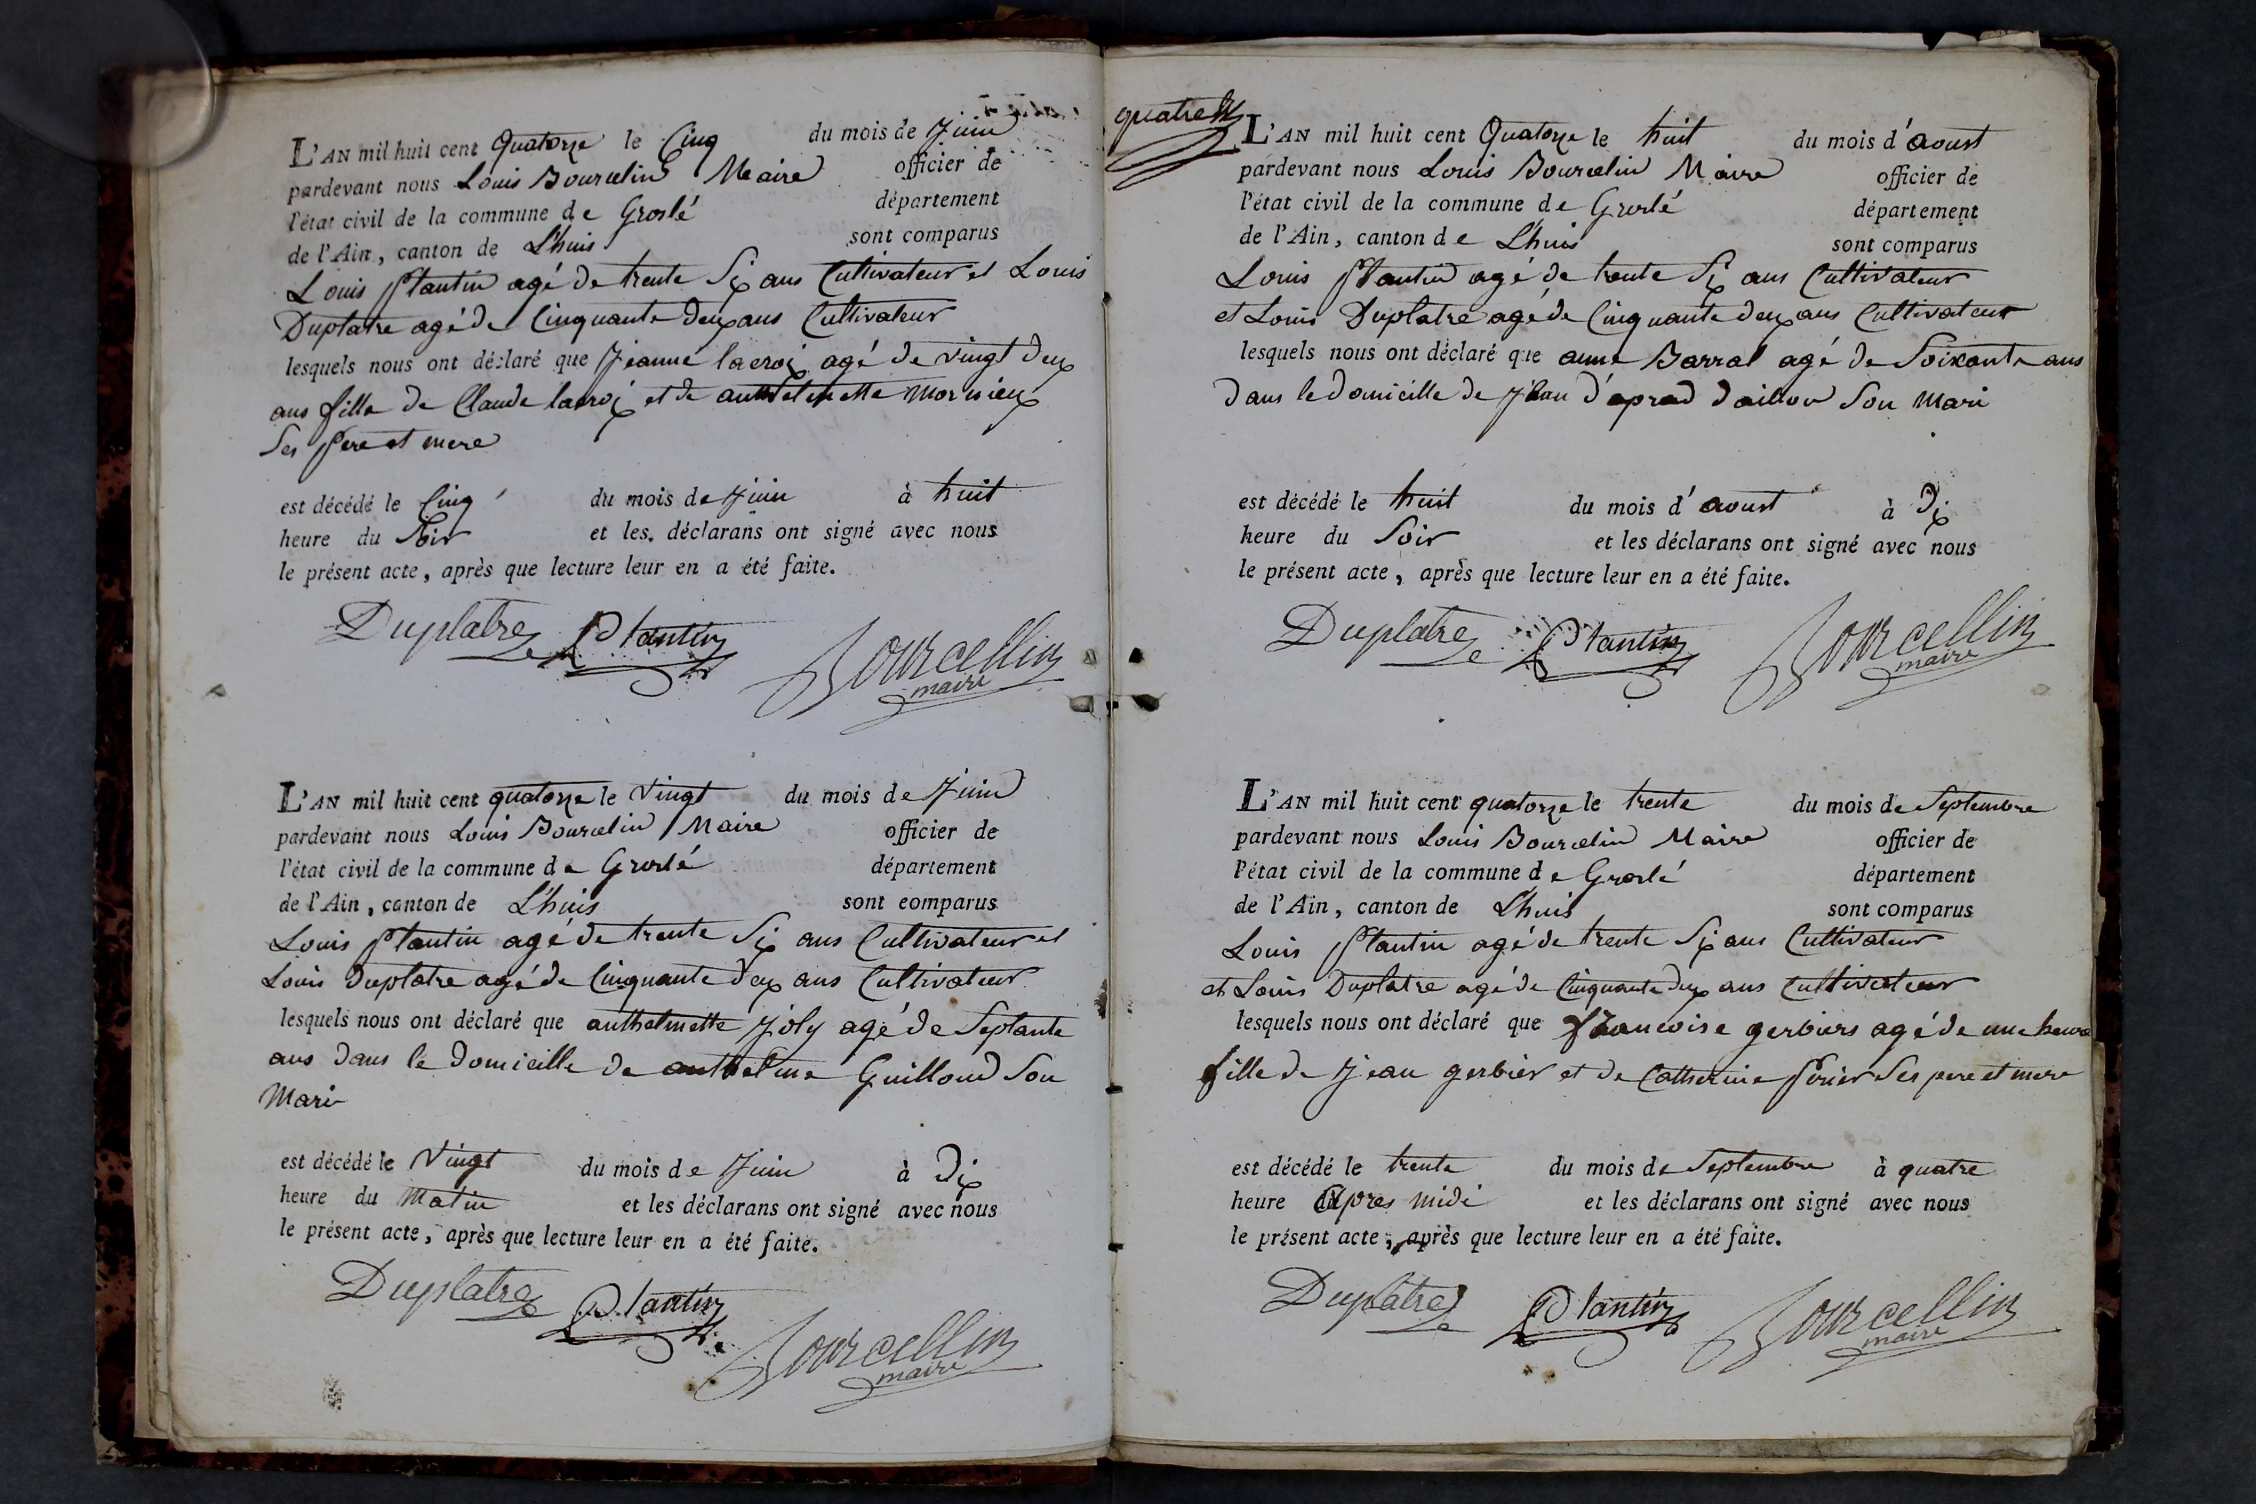 L'AN mil huit cent Quatorze le Cinq du mois de Juin
pardevant nous Louis Bourcelin Maire officier de
l'état civil de la commune de Groslé département
de l'Ain, canton de L'huis sont comparus
Louis Plantin agé de trente Six ans Cultivateur et Louis
Duplatre agé de Cinquante deux ans Cultivateur
lesquels nous ont déclaré que Jeanne lacroix agé de vingt deux
ans fille de Claude lacroix et de anthelmette
Ses Pere et mere
est décédé le Cinq du mois de Juin à huit
heure du Soir et les déclarans ont signé avec nous
le présent acte, après que lecture leur en a été faite.
Duplatre Plantin Bourcellin
maire
L'AN mil huit cent quatorze le Vingt du mois de Juin
pardevant nous Louis Bourcelin Maire officier de
l'état civil de la commune de Groslé département
de l'Ain, canton de L'huis sont comparus
Louis Plantin agé de trente Six ans Cultivateur et
Louis Duplatre agé de Cinquante deux ans Cultivateur
lesquels nous ont déclaré que anthelmette Joly agé de Septante
ans dans le domicille de anthelme Guilloud Son
Mari
est décédé le Vingt du mois de Juin à Dix
heure du Matin et les déclarans ont signé avec nous
le présent acte, après que lecture leur en a été faite.
Duplatre Plantin Bourcellin
maire
quatre
L'AN mil huit cent Quatorze le huit du mois d'aoust
pardevant nous Louis Bourcelin Maire officier de
l'état civil de la commune de Groslé département
de l'Ain, canton de L'huis sont comparus
Louis Plantin agé de trente Six ans Cultivateur
et Louis Duplatre agé de Cinquante deux ans Cultivateur
lesquels nous ont déclaré que anne Barral agé de Soixante ans
dans le domicille de Jean Son Mari
est décédé le huit du mois d'aoust à Dix
heure du Soir et les déclarans ont signé avec nous
le présent acte, après que lecture leur en a été faite.
Duplatre Plantin Bourcellin
maire
L'AN mil huit cent quatorze le trente du mois de Septembre
pardevant nous Louis Bourcelin Maire officier de
l'état civil de la commune de Groslé département
de l'Ain, canton de L'huis sont comparus
Louis Plantin agé de trente Six ans Cultivateur
et Louis Duplatre agé de Cinquante deux ans Cultivateur
lesquels nous ont déclaré que francoise gerbiers agé de une heure
fille de Jean gerbier et de Catherine Ses pere et mere
est décédé le trente du mois de Septembre à quatre
heure apres midi et les déclarans ont signé avec nous
le présent acte, après que lecture leur en a été faite.
Duplatre Plantin Bourcellin
maire